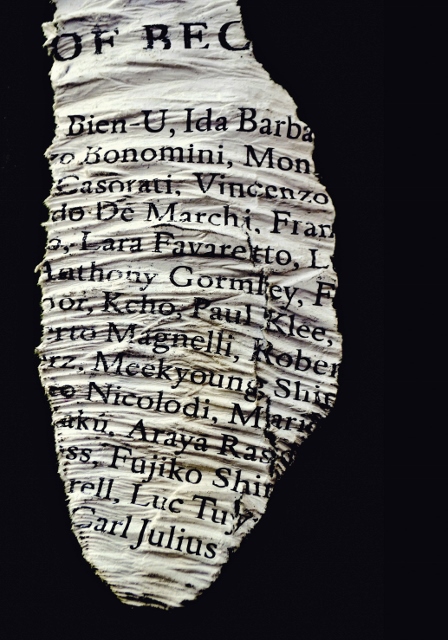 OF BEC
Bien-U, Ida Barba
zo Bonomini, Mon
Casorati, Vincenzo
do De Marchi, Fran
o, Lara Favaretto, L
Anthony Gormley, F
oor, Kcho, Paul Klee,
erto Magnelli, Rober
rz, Meekyoung Shin
eo Nicolodi, Mari
aku, Araya Ras
ss, Fujiko Shir
rell, Luc Tuy
Carl Julius